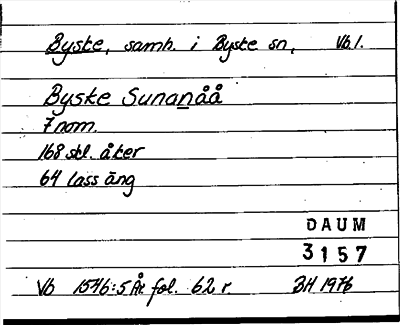 Byske, samh. i Byske sn, Vb.l.
Byske Sunanåå
7 nom.
168 skl. åker
64 lass äng
DAUM
3157
Vb 1546:5 Åt fol. 62 r. BH 1976